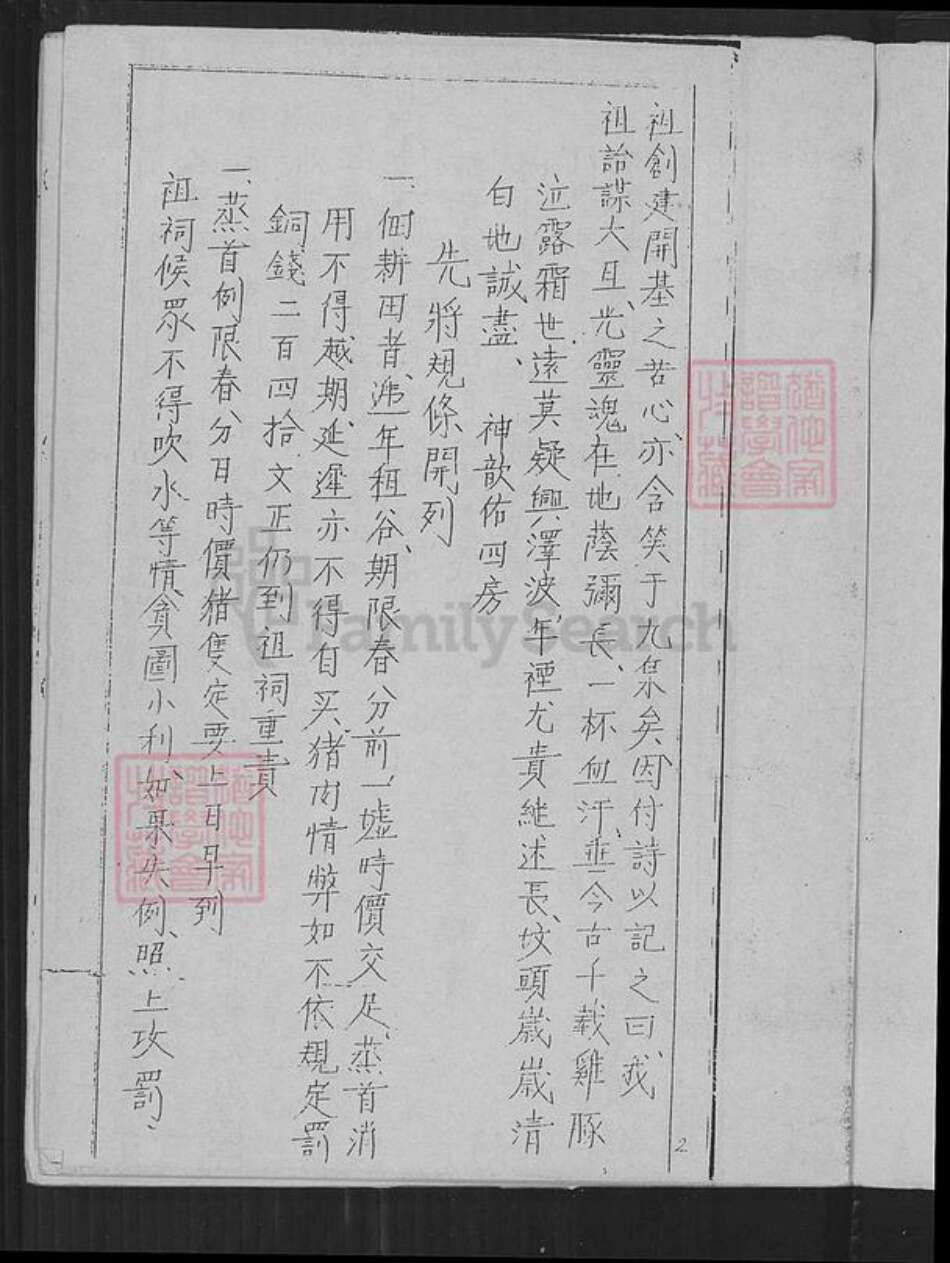 祖創建開基之苦心、亦含笑于九泉矣、因付詩以記之曰、我
祖詒謀大且、光靈魂在地蔭彌長、一杯血汗、垂今古千載雞豚
泣露霜世遠莫疑興澤波、年禋尤貴継述長、坟頭歲歲清
白地誠盡、 神歆佑四房
先將規條開列
一、佃耕田者、遞年租谷、期限春分前一墟時價交足、蒸首消
用不得越期、延遲亦不得自买、猪肉情弊如不依規定罰
銅錢二百四拾文正仍到祖祠重責
一、蒸首例限春分日時價猪隻定要上日早到
祖祠候眾不得吹水等情貪圖小利、如果失例、照上攻罰、
2
FamilySearch